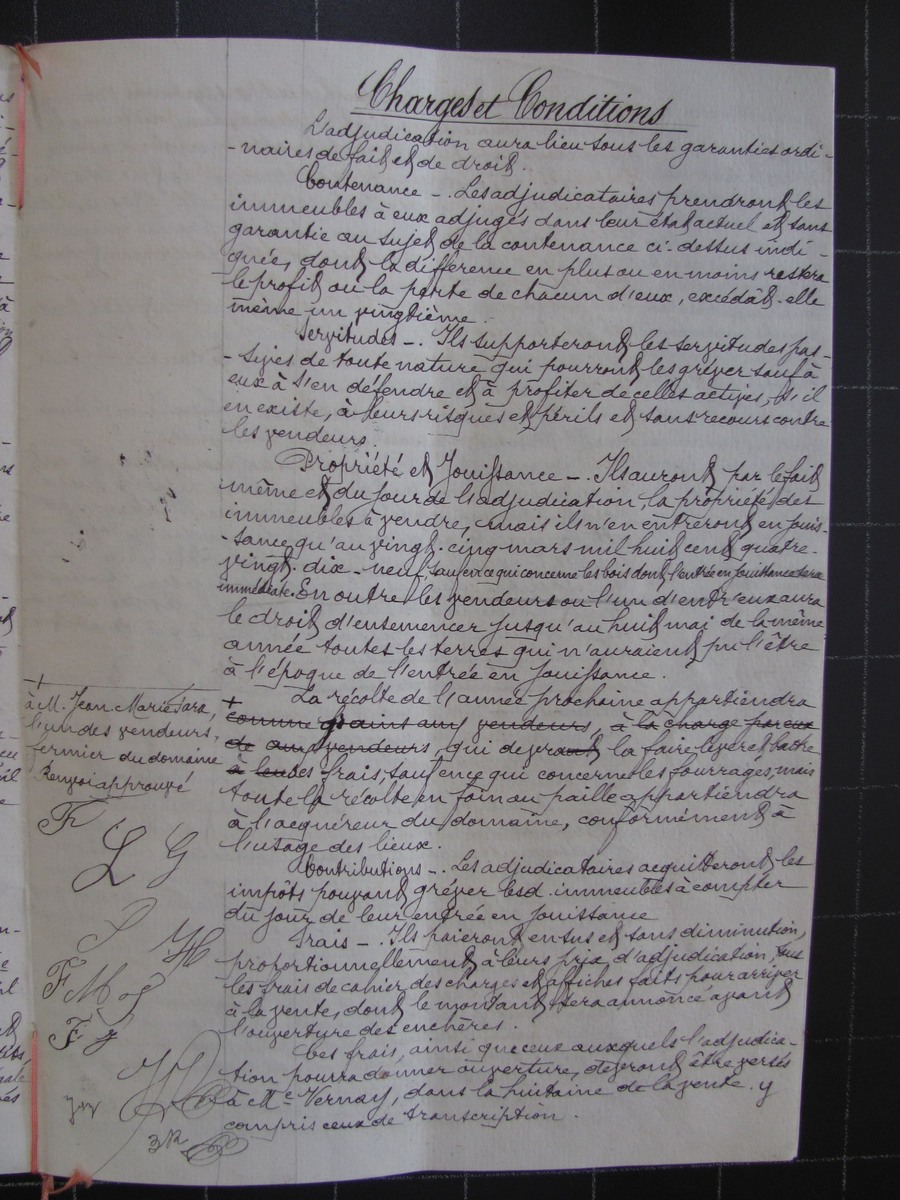 Charges et Conditions
L'adjudication aura lieu sous les garanties ordi-
-naires de fait et de droit.
Contenance -. Les adjudicataires prendront les
immeubles à eux adjugés dans leur état actuel et sans
garantie au sujet de la contenance ci-dessus indi-
quée, dont la différence en plus ou en moins restera
le profit ou la perte de chacun d'eux, excédât-elle
même un vingtième.
Servitudes -. Ils supporteront les servitudes pas-
-sives de toute nature qui pourront les grever sauf à
eux à s'en défendre et à profiter de celles actives, s'il
en existe, à leurs risques et périls et sans recours contre
les vendeurs.
Propriété et Jouissance -. Ils auront par le fait
même et du jour de l'adjudication, la propriété des
immeubles à vendre, mais ils n'en entreront en jouis-
-sance qu'au vingt-cinq mars mil huit cent quatre-
vingt-dix-neuf, sauf en ce qui concerne les bois dont l'entrée en jouissance sera
immédiate. En outre les vendeurs ou l'un d'entr'eux aura
le droit d'ensemencer jusqu'au huit mai de la même
année toutes les terres qui n'auraient pu l'être
à l'époque de l'entrée en jouissance.
La récolte de l'année prochaine appartiendra
+
comme grains aux vendeurs, à la charge par eux
de aux vendeurs, qui devront la faire lever et battre
à leurs frais, sauf en ce qui concerne les fourrages, mais
toute la récolte en foin ou paille appartiendra
à l'acquéreur du domaine, conformément à
l'usage des lieux.
Contributions -. Les adjudicataires acquitteront les
impôts pouvant gréver lesd. immeubles à compter
du jour de leur entrée en jouissance
Frais -. Ils paieront en sus et sans diminution,
proportionnellement à leurs prix d'adjudication, tous
les frais de cahier des charges et affiches faits pour arriver
à la vente, dont le montant sera annoncé avant
l'ouverture des enchères.
Ces frais, ainsi que ceux auxquels l'adjudica-
tion pourra donner ouverture, devront être versés
à Me Vernay, dans la huitaine de la vente. y
compris ceux de transcription.
+
à M. Jean Marie
l'un des vendeurs,
fermier du domaine
Renvoi approuvé